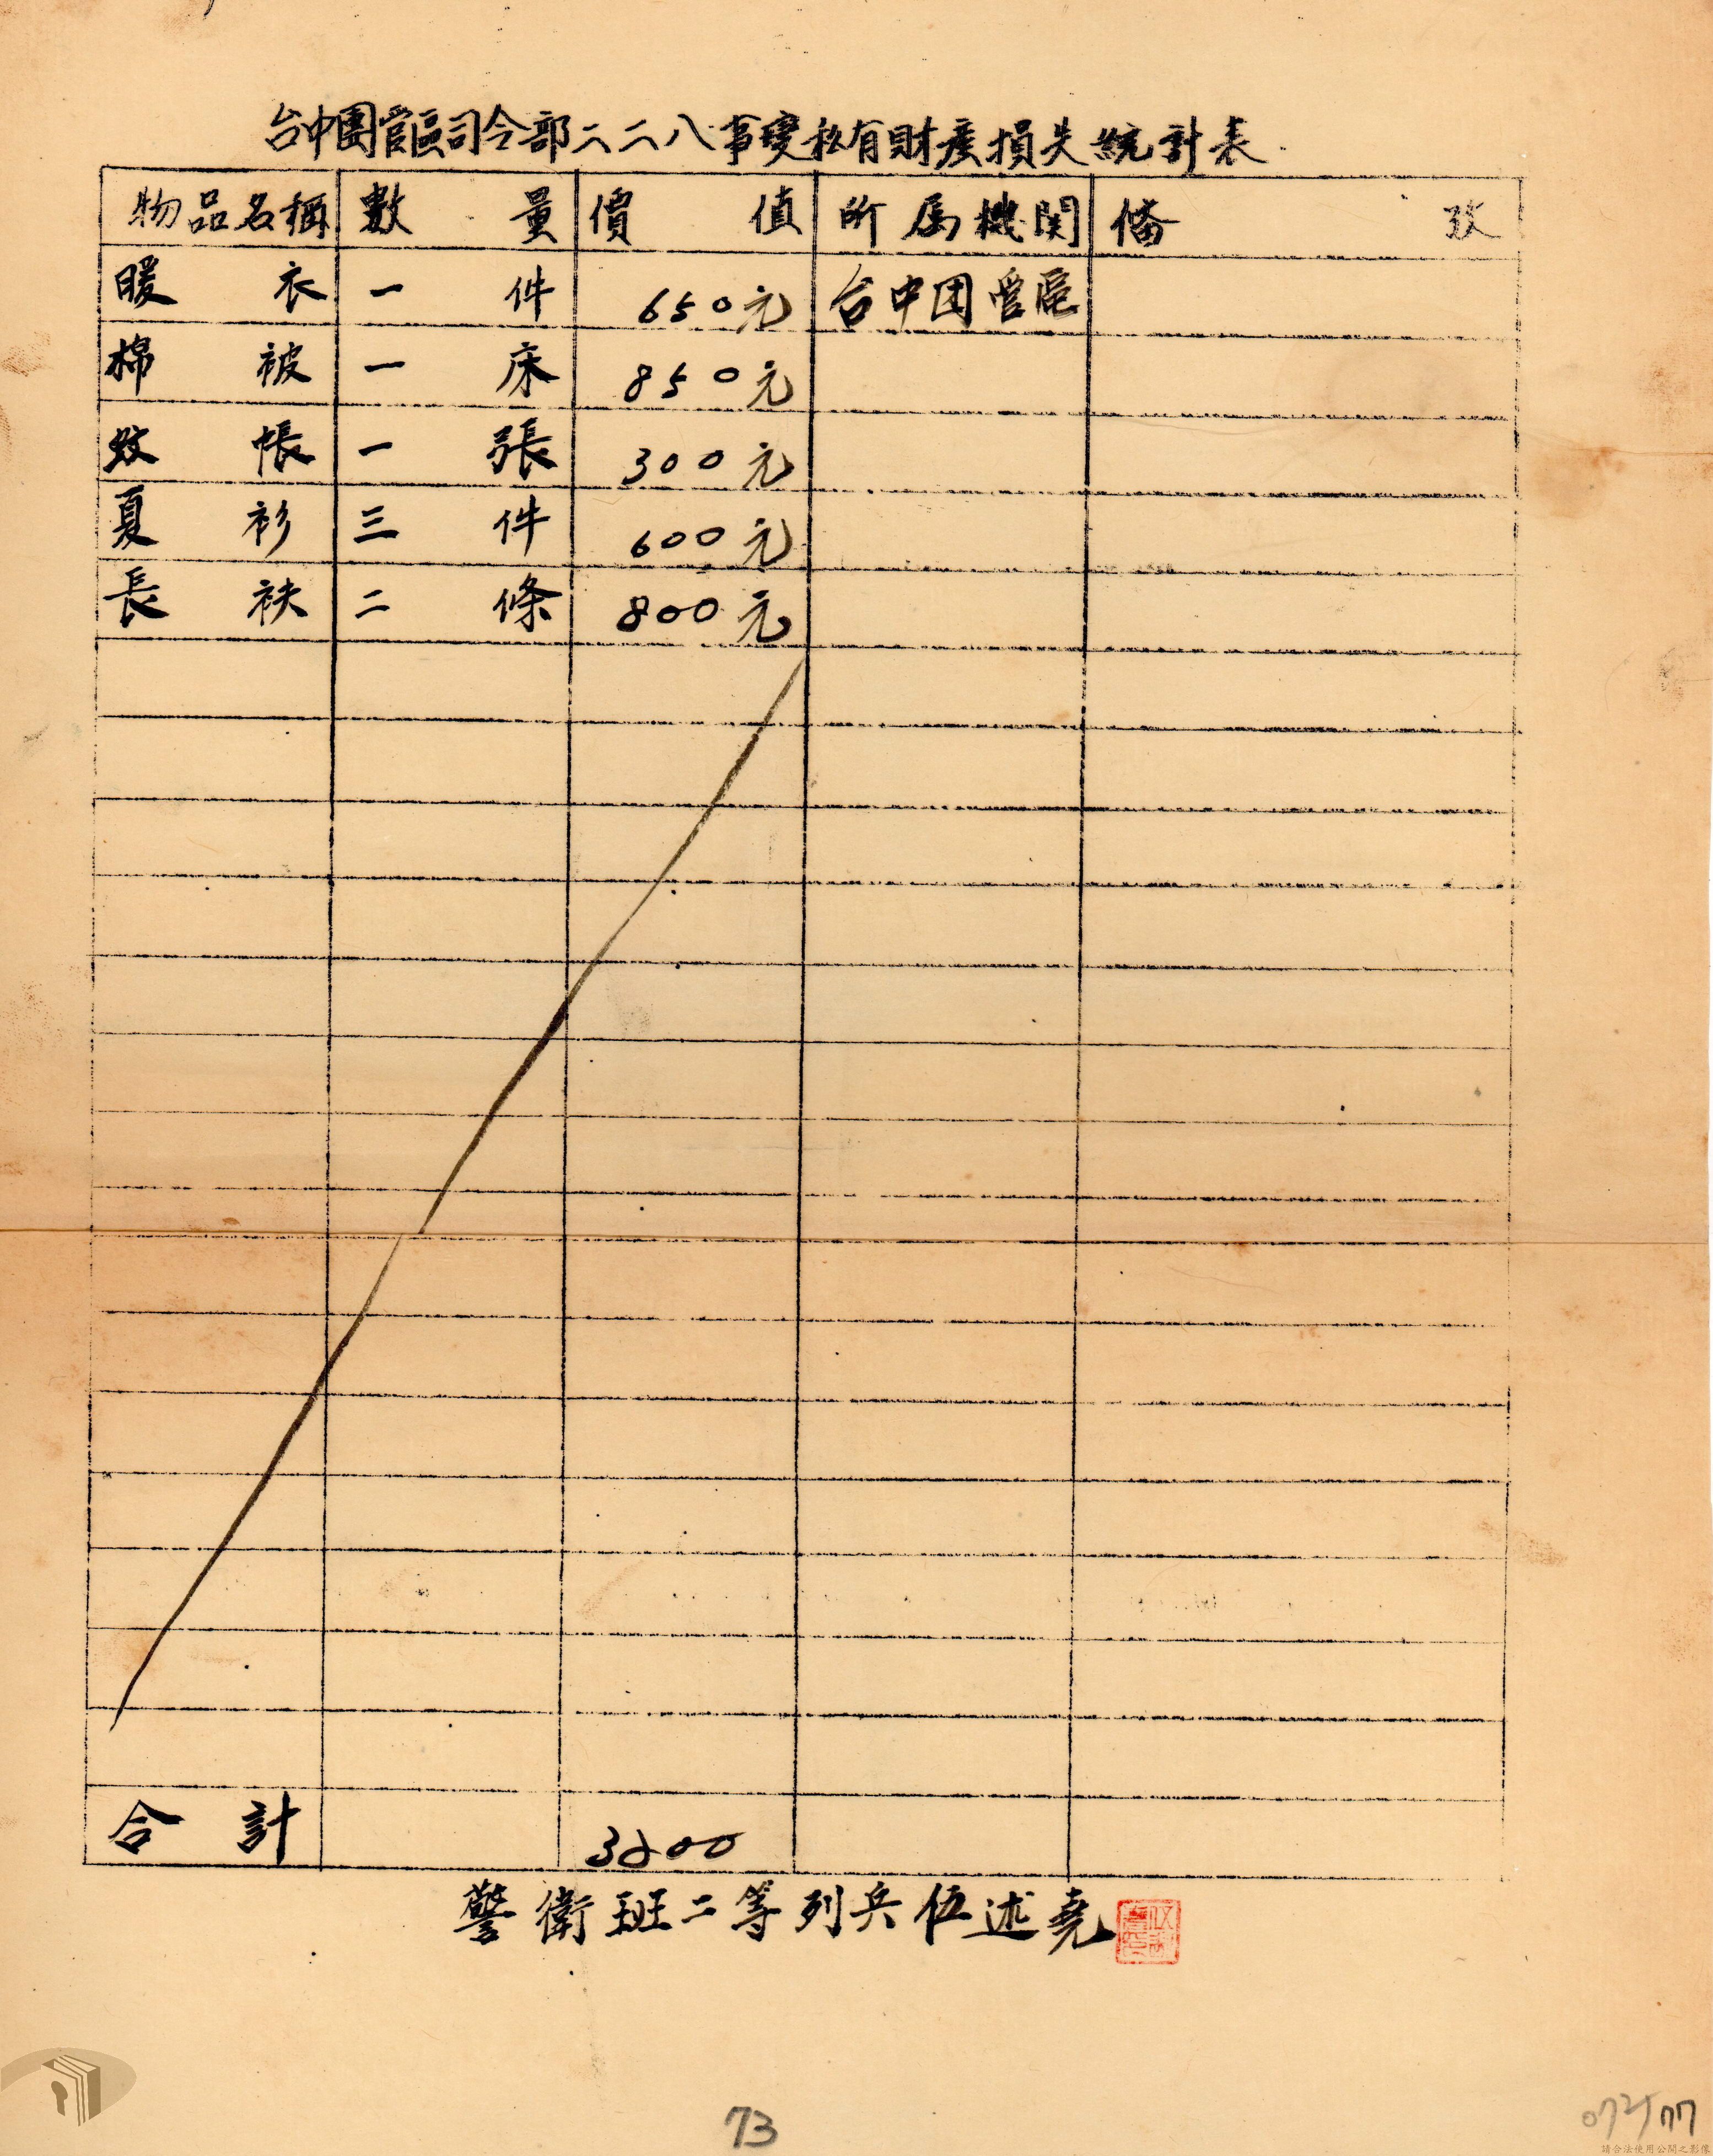 台中團管區司令部二二八事變私有財產損失統計表
物品名稱 數量 價值 所屬機関 備攷
暖衣 一件 650元 台中团管區
棉被 一床 850元
蚊帳 一張 300元
夏衫 三件 600元
長袂 二條 800元
合計 3200
警衛班二等列兵伍述堯
73
請合法使用公開之影像